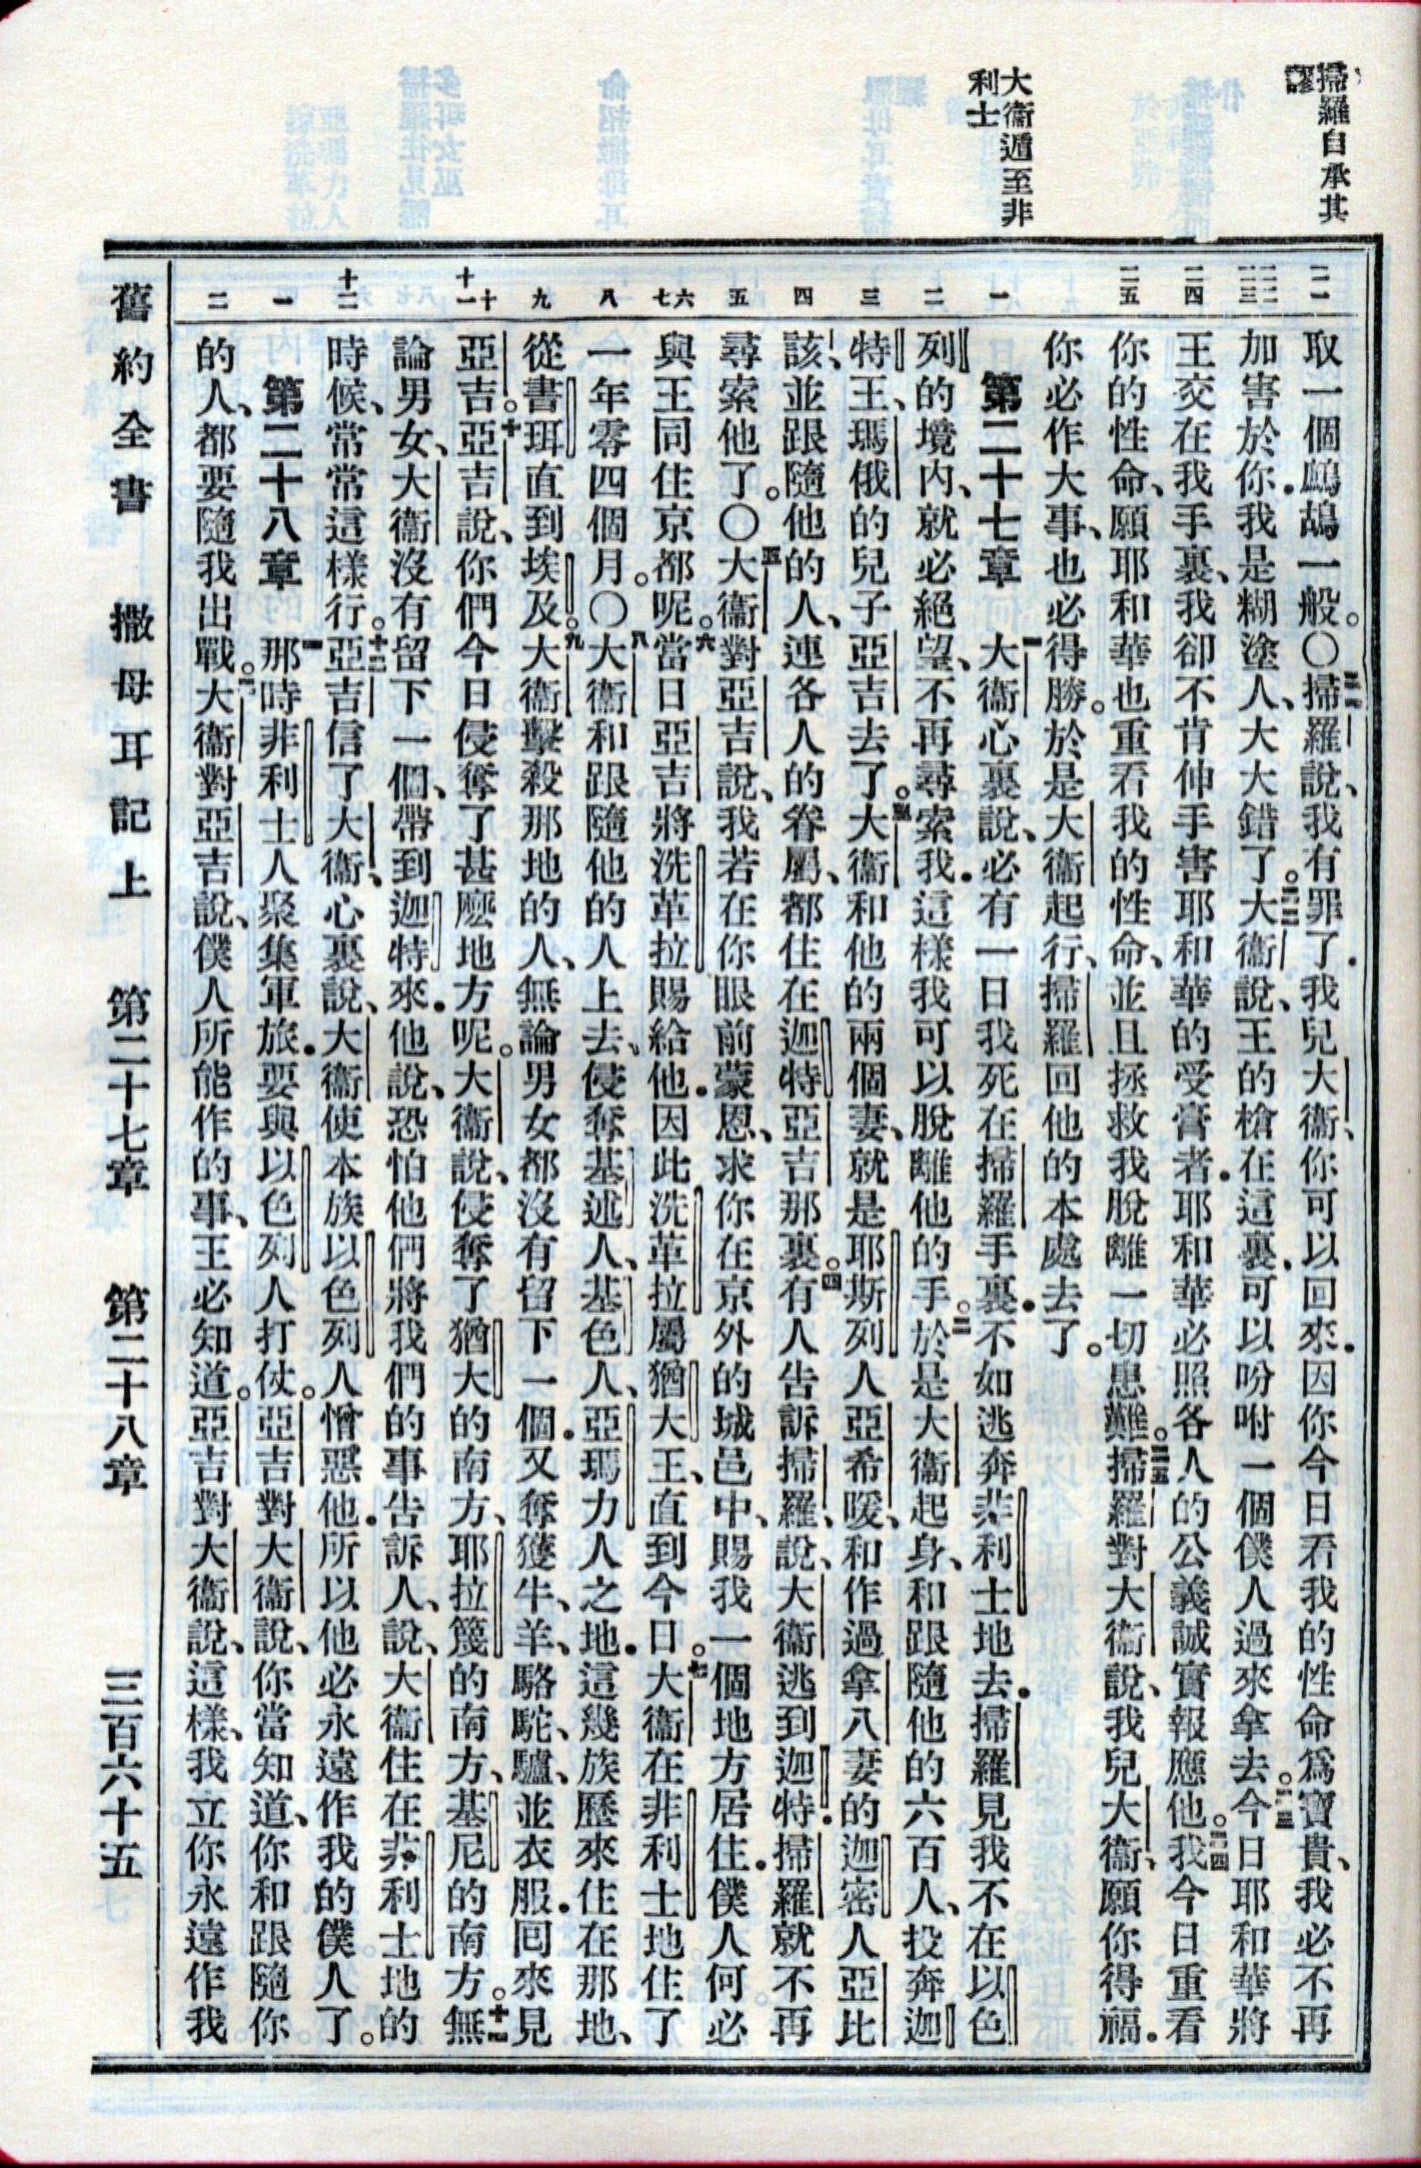 掃羅自承其
謬
大衞遁至非
利士
二一
二二
二三
二四
二五
一
二
三
四
五
六
七
八
九
十
十一
十二
一
二
取一個鷓鴣一般。〇二一掃羅說、我有罪了．我兒大衞、你可以回來．因你今日看我的性命爲寶貴、我必不再
加害於你．我是糊塗人、大大錯了。二二大衞說、王的槍在這裏、可以吩咐一個僕人過來拿去。二三今日耶和華將
王交在我手裏、我卻不肯伸手害耶和華的受膏者．耶和華必照各人的公義誠實報應他。二四我今日重看
你的性命、願耶和華也重看我的性命、並且拯救我脫離一切患難。二五掃羅對大衞說、我兒大衞、願你得福．
你必作大事、也必得勝。於是大衞起行、掃羅回他的本處去了。
第二十七章　一大衞心裏說、必有一日我死在掃羅手裏．不如逃奔非利士地去．掃羅見我不在以色
列的境內、就必絕望、不再尋索我．這樣我可以脫離他的手。二於是大衞起身、和跟隨他的六百人、投奔迦
特王、瑪俄的兒子亞吉去了。三大衞和他的兩個妻、就是耶斯列人亞希暖、和作過拿八妻的迦密人亞比
該、並跟隨他的人、連各人的眷屬、都住在迦特亞吉那裏。四有人告訴掃羅、說、大衞逃到迦特．掃羅就不再
尋索他了。〇五大衞對亞吉說、我若在你眼前蒙恩、求你在京外的城邑中、賜我一個地方居住．僕人何必
與王同住京都呢。六當日亞吉將洗革拉賜給他．因此洗革拉屬猶大王、直到今日。七大衞在非利士地住了
一年零四個月。〇八大衞和跟隨他的人上去、侵奪基述人、基色人、亞瑪力人之地．這幾族歷來住在那地、
從書珥直到埃及。九大衞擊殺那地的人、無論男女都沒有留下一個．又奪獲牛、羊、駱駝、驢、並衣服．回來見
亞吉。十亞吉說、你們今日侵奪了甚麼地方呢。大衞說、侵奪了猶大的南方、耶拉篾的南方、基尼的南方。十一無
論男女、大衞沒有留下一個、帶到迦特來．他說、恐怕他們將我們的事告訴人、說、大衞住在非利士地的
時候、常常這樣行。十二亞吉信了大衞、心裏說、大衞使本族以色列人憎惡他．所以他必永遠作我的僕人了。
第二十八章　一那時非利士人聚集軍旅．要與以色列人打仗。亞吉對大衞說、你當知道、你和跟隨你
的人、都要隨我出戰。二大衞對亞吉說、僕人所能作的事、王必知道。亞吉對大衞說、這樣、我立你永遠作我
舊約全書　撒母耳記上　第二十七章　第二十八章　三百六十五